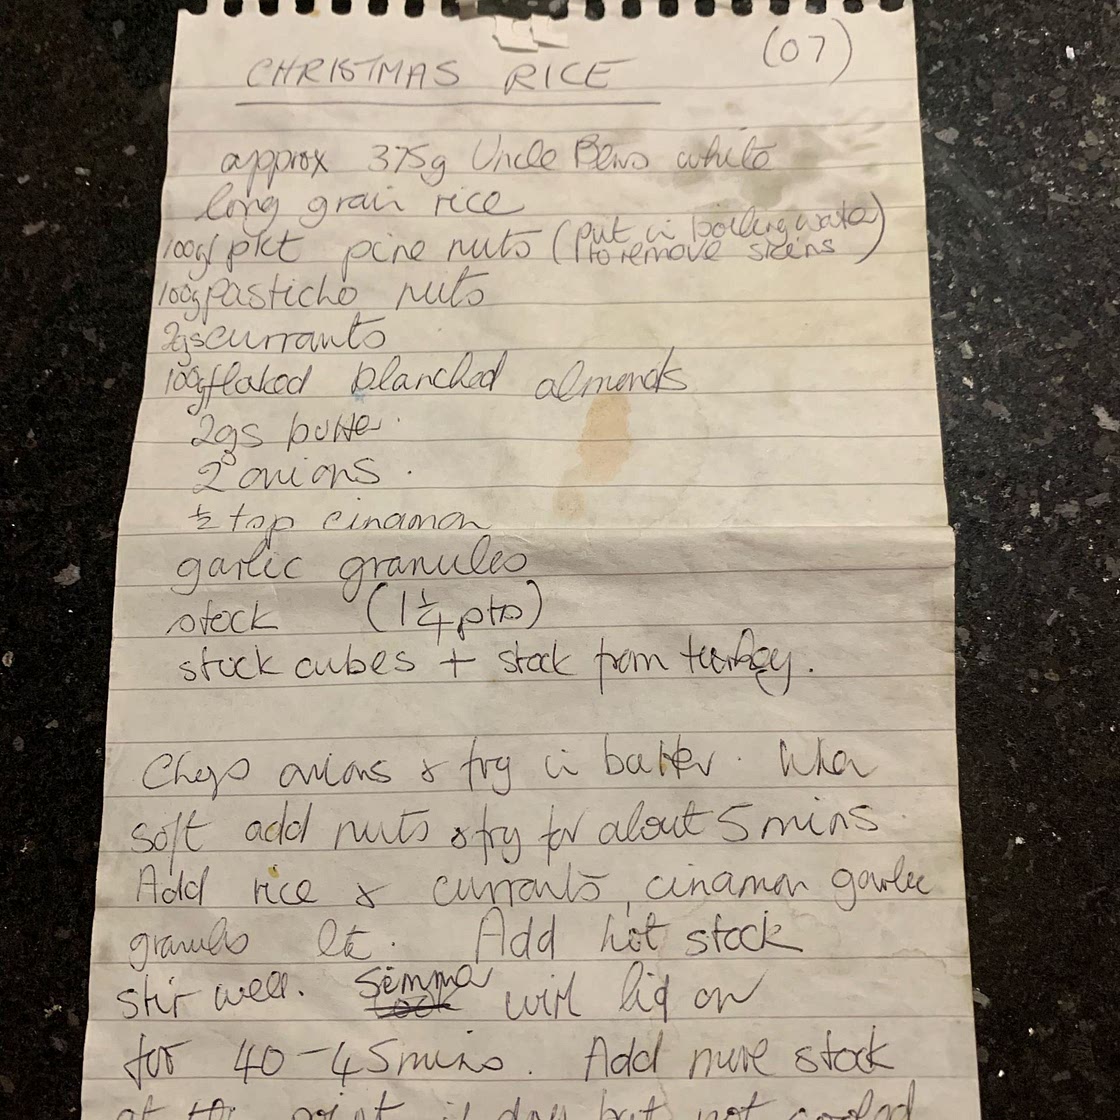 (07)
CHRISTMAS RICE
approx 375g Uncle Bens white
long grain rice
100g pkt pine nuts (put in boiling water
to remove skins)
100g pasticho nuts
2ozs currants
100g flaked blanched almonds
2ozs butter.
2 onions.
½ tsp cinamon
garlic granules
stock (1¼ pts)
stock cubes + stock from turkey.
Chop onions & fry in butter. When
soft add nuts & fry for about 5 mins.
Add rice & currants, cinamon garlic
granules etc. Add hot stock
stir well. Simmer with lid on
for 40-45 mins. Add more stock
at this point if dry but not cooked